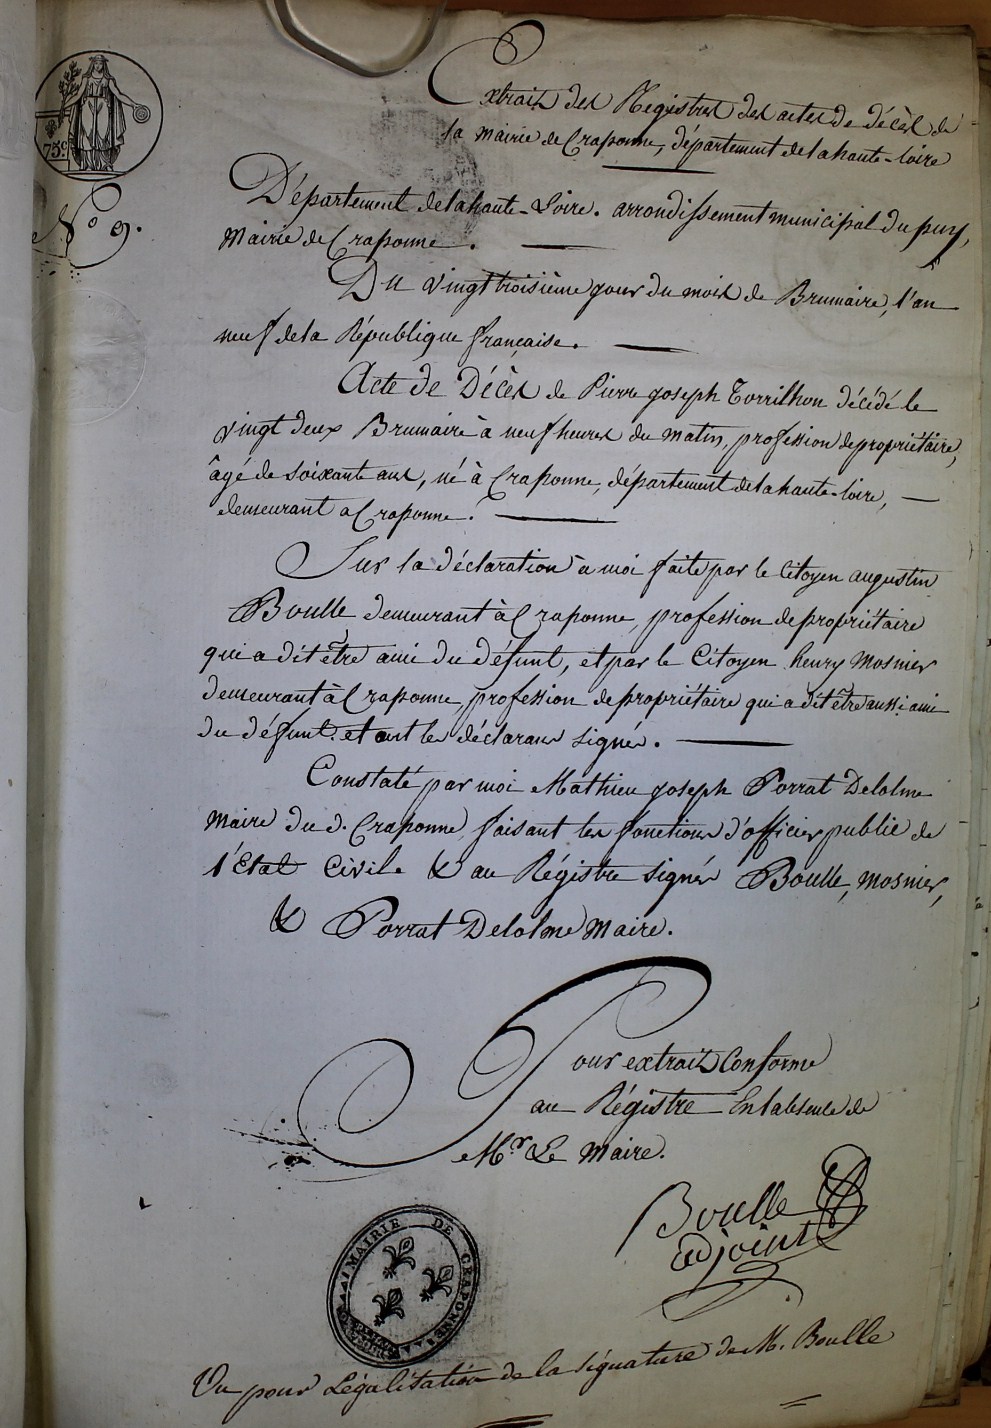 75c.
N° 9.
Extrait des Régistres des actes de décès de
la mairie de Craponne, département de la haute-loire
Département de la haute-Loire. arrondissement municipal du puy,
Mairie de Craponne.
Du vingt troisième jour du mois de Brumaire, l'an
neuf de la République française.
Acte de Décès de Pierre joseph Torrilhon décédé le
vingt deux Brumaire à neuf heures du matin, profession de propriétaire,
âgé de soixante ans, né à Craponne, département de la haute-loire,
demeurant a Craponne.
Sur la déclaration à moi faite par le Citoyen augustin
Boulle demeurant à Craponne, profession de propriétaire
qui a dit être ami du défunt, et par le Citoyen henry Mosnier
demeurant à Craponne profession de propriétaire qui a dit être aussi ami
du défunt. et ont les déclarans signés.
Constaté par moi Mathieu joseph Porrat Delolme
Maire du d. Craponne, faisant les fonctions d'officier public de
l'état Civil. & au Régistre signés Boulle, mosnier,
& Porrat Delolme Maire.
Pour extrait Conforme
au Régistre En labsence de
Mr Le Maire.
Boulle
adjoint
MAIRIE DE CRAPONNE
Vu pour Légalisation de la signature de M. Boulle